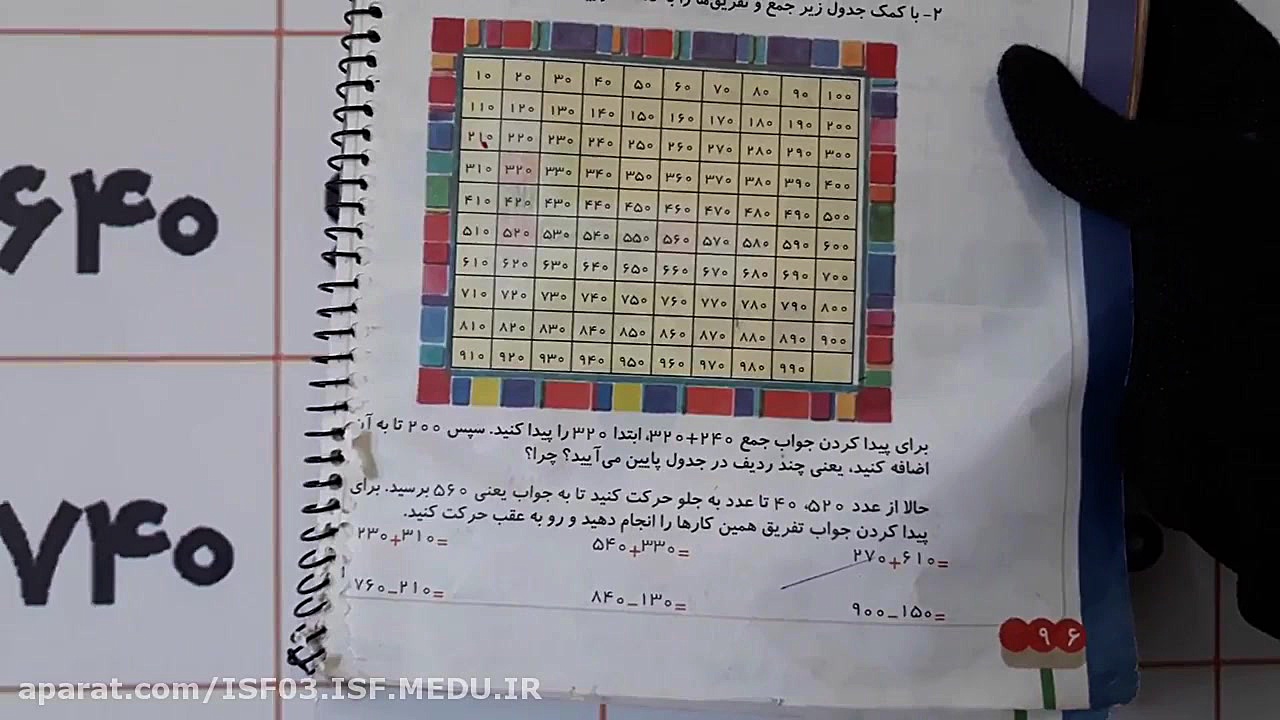 ۲- با کمک جدول زیر جمع و تفریق‌ها را
۱۰ ۲۰ ۳۰ ۴۰ ۵۰ ۶۰ ۷۰ ۸۰ ۹۰ ۱۰۰
۱۱۰ ۱۲۰ ۱۳۰ ۱۴۰ ۱۵۰ ۱۶۰ ۱۷۰ ۱۸۰ ۱۹۰ ۲۰۰
۲۱۰ ۲۲۰ ۲۳۰ ۲۴۰ ۲۵۰ ۲۶۰ ۲۷۰ ۲۸۰ ۲۹۰ ۳۰۰
۳۱۰ ۳۲۰ ۳۳۰ ۳۴۰ ۳۵۰ ۳۶۰ ۳۷۰ ۳۸۰ ۳۹۰ ۴۰۰
۴۱۰ ۴۲۰ ۴۳۰ ۴۴۰ ۴۵۰ ۴۶۰ ۴۷۰ ۴۸۰ ۴۹۰ ۵۰۰
۵۱۰ ۵۲۰ ۵۳۰ ۵۴۰ ۵۵۰ ۵۶۰ ۵۷۰ ۵۸۰ ۵۹۰ ۶۰۰
۶۱۰ ۶۲۰ ۶۳۰ ۶۴۰ ۶۵۰ ۶۶۰ ۶۷۰ ۶۸۰ ۶۹۰ ۷۰۰
۷۱۰ ۷۲۰ ۷۳۰ ۷۴۰ ۷۵۰ ۷۶۰ ۷۷۰ ۷۸۰ ۷۹۰ ۸۰۰
۸۱۰ ۸۲۰ ۸۳۰ ۸۴۰ ۸۵۰ ۸۶۰ ۸۷۰ ۸۸۰ ۸۹۰ ۹۰۰
۹۱۰ ۹۲۰ ۹۳۰ ۹۴۰ ۹۵۰ ۹۶۰ ۹۷۰ ۹۸۰ ۹۹۰
برای پیدا کردن جواب جمع ۳۲۰+۲۴۰، ابتدا ۳۲۰ را پیدا کنید. سپس ۲۰۰ تا به آن
اضافه کنید، یعنی چند ردیف در جدول پایین می‌آیید؟ چرا؟
حالا از عدد ۵۲۰، ۴۰ تا عدد به جلو حرکت کنید تا به جواب یعنی ۵۶۰ برسید. برای
پیدا کردن جواب تفریق همین کارها را انجام دهید و رو به عقب حرکت کنید.
۲۳۰+۳۱۰= ۵۴۰+۳۳۰= ۲۷۰+۶۱۰=
۷۶۰-۲۱۰= ۸۴۰-۱۳۰= ۹۰۰-۱۵۰=
۹۶
۶۴۰
۷۴۰
aparat.com/ISF03.ISF.MEDU.IR